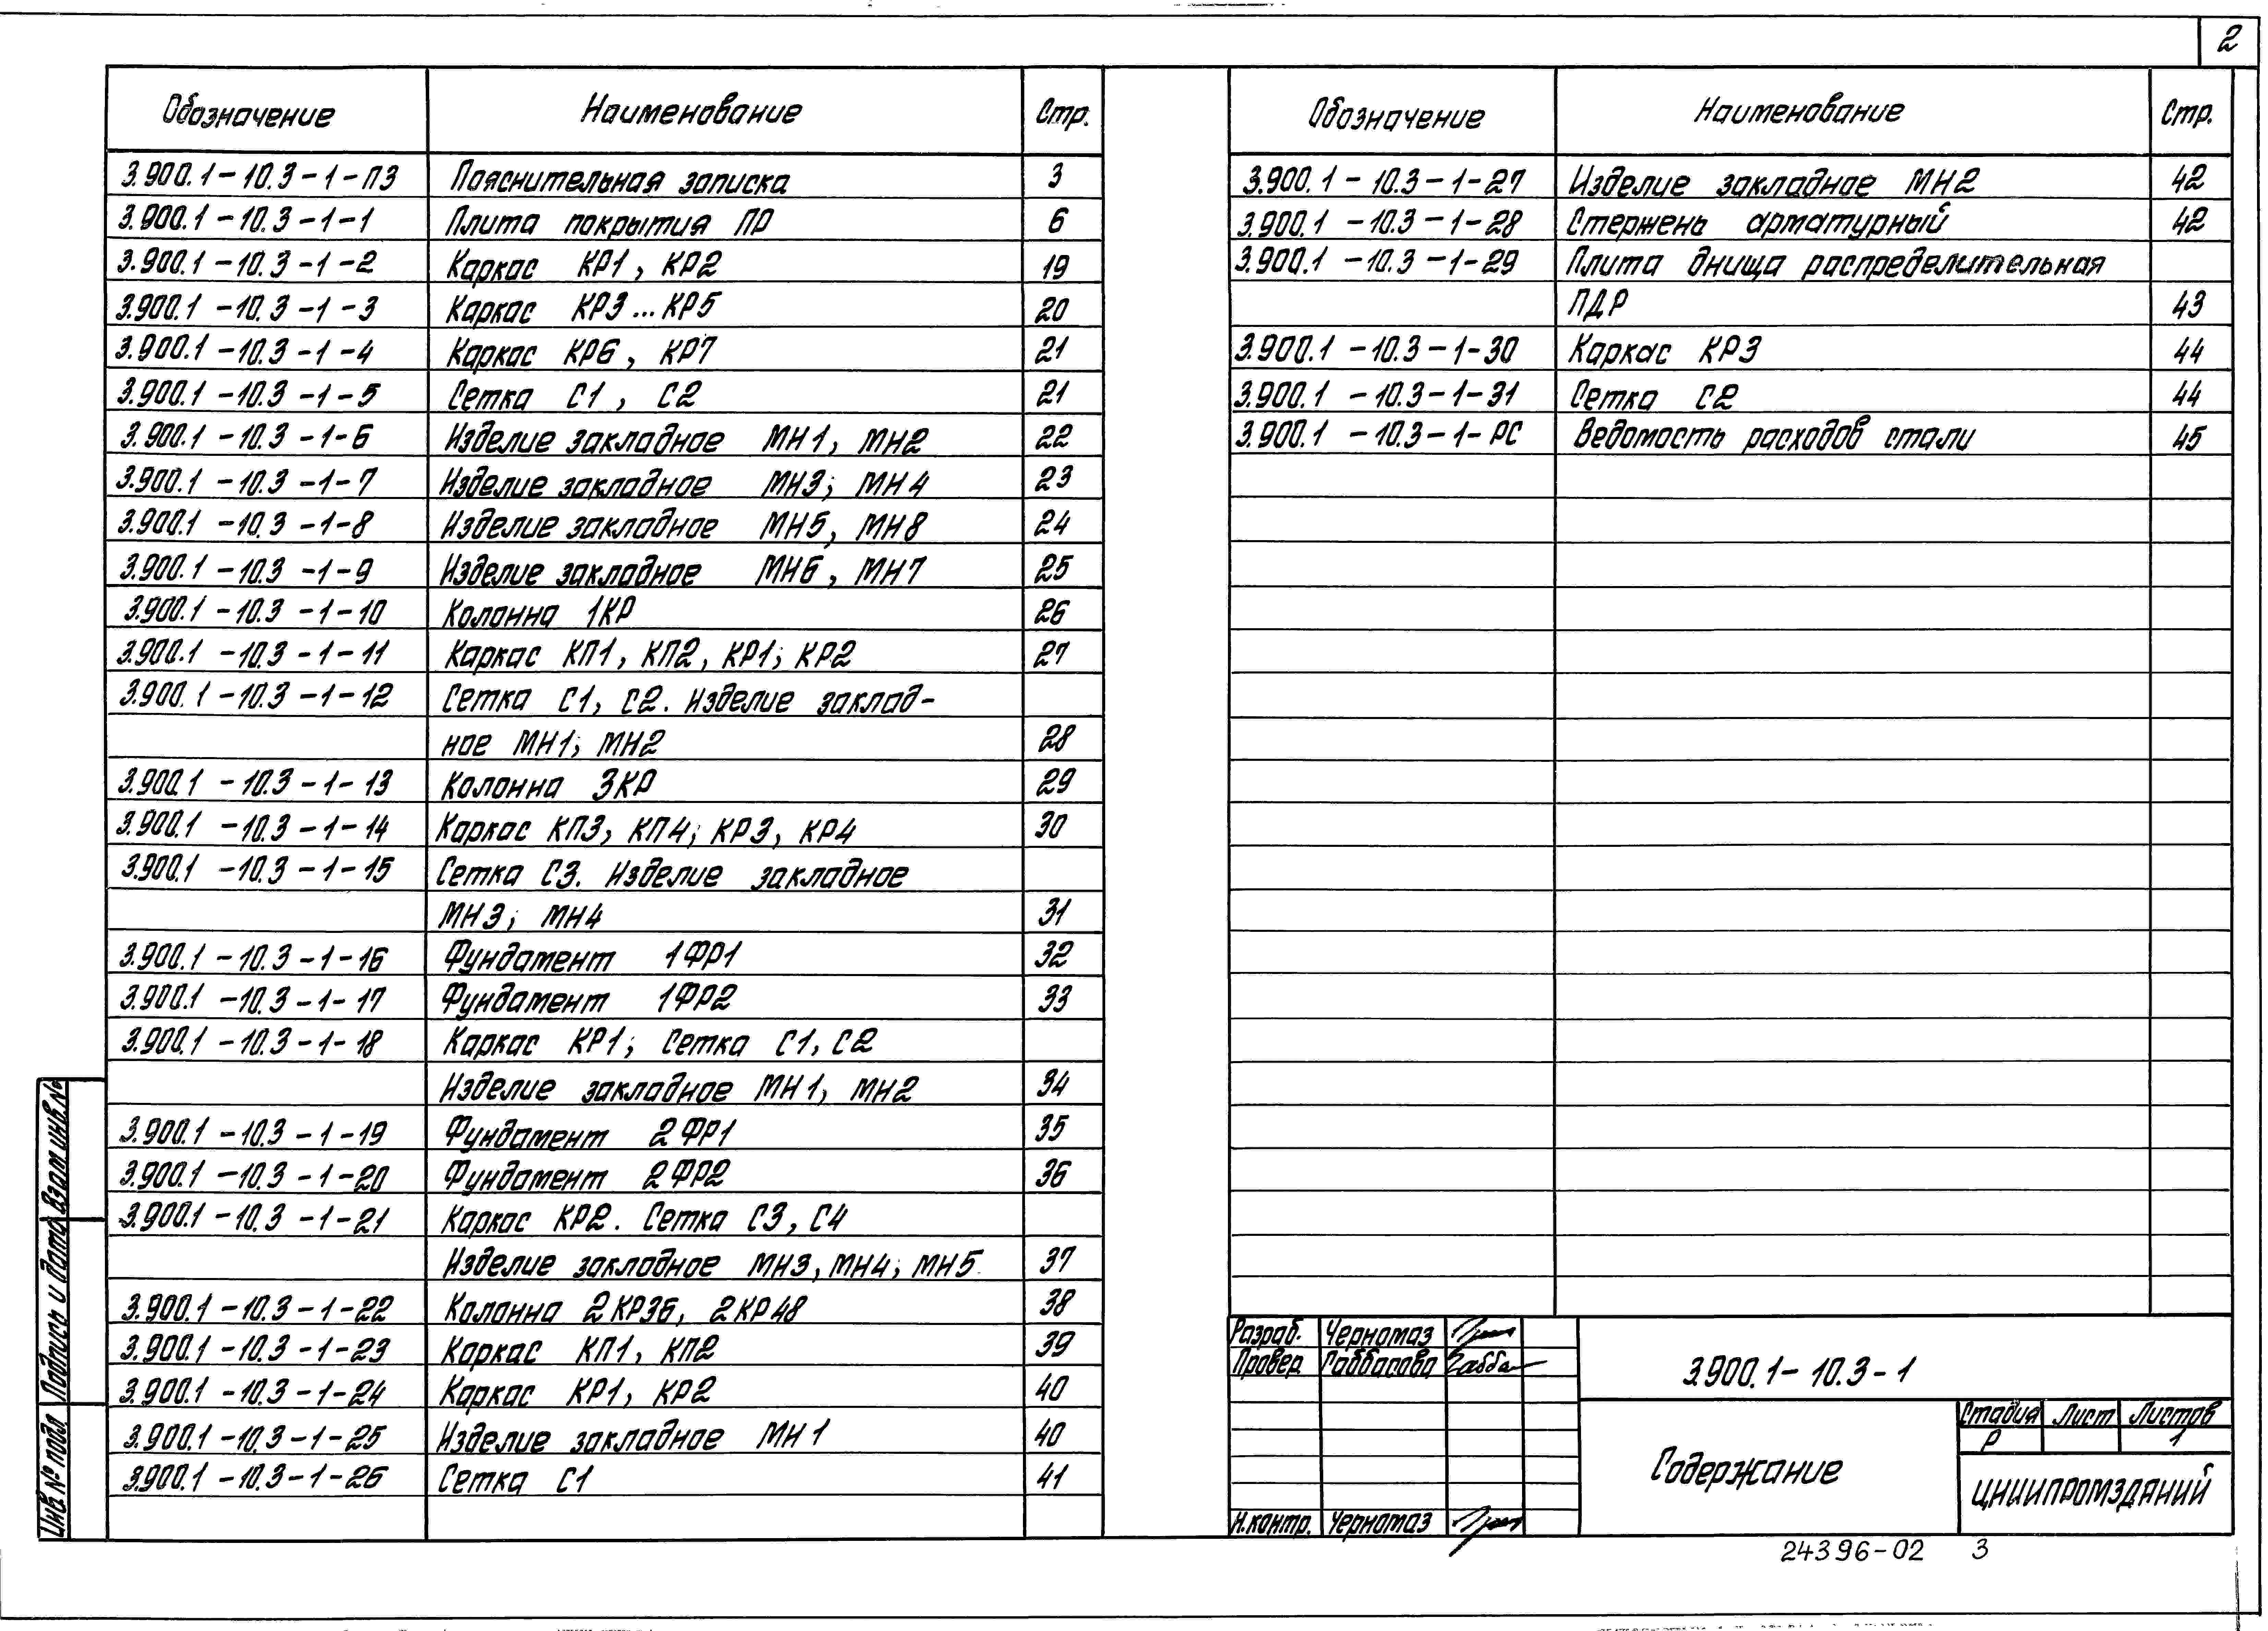 2
Обозначение Наименование Стр.
3.900.1-10.3-1-ПЗ Пояснительная записка 3
3.900.1-10.3-1-1 Плита покрытия ПР 6
3.900.1-10.3-1-2 Каркас КР1, КР2 19
3.900.1-10.3-1-3 Каркас КР3...КР5 20
3.900.1-10.3-1-4 Каркас КР6, КР7 21
3.900.1-10.3-1-5 Сетка С1, С2 21
3.900.1-10.3-1-6 Изделие закладное МН1, МН2 22
3.900.1-10.3-1-7 Изделие закладное МН3; МН4 23
3.900.1-10.3-1-8 Изделие закладное МН5, МН8 24
3.900.1-10.3-1-9 Изделие закладное МН6, МН7 25
3.900.1-10.3-1-10 Колонна 1КР 26
3.900.1-10.3-1-11 Каркас КП1, КП2, КР1; КР2 27
3.900.1-10.3-1-12 Сетка С1, С2. Изделие заклад-
ное МН1; МН2 28
3.900.1-10.3-1-13 Колонна 3КР 29
3.900.1-10.3-1-14 Каркас КП3, КП4; КР3, КР4 30
3.900.1-10.3-1-15 Сетка С3. Изделие закладное
МН3; МН4 31
3.900.1-10.3-1-16 Фундамент 1ФР1 32
3.900.1-10.3-1-17 Фундамент 1ФР2 33
3.900.1-10.3-1-18 Каркас КР1; Сетка С1, С2
Изделие закладное МН1, МН2 34
3.900.1-10.3-1-19 Фундамент 2ФР1 35
3.900.1-10.3-1-20 Фундамент 2ФР2 36
3.900.1-10.3-1-21 Каркас КР2. Сетка С3, С4
Изделие закладное МН3, МН4; МН5 37
3.900.1-10.3-1-22 Колонна 2КР36, 2КР48 38
3.900.1-10.3-1-23 Каркас КП1, КП2 39
3.900.1-10.3-1-24 Каркас КР1, КР2 40
3.900.1-10.3-1-25 Изделие закладное МН1 40
3.900.1-10.3-1-26 Сетка С1 41
Обозначение Наименование Стр.
3.900.1-10.3-1-27 Изделие закладное МН2 42
3.900.1-10.3-1-28 Стержень арматурный 42
3.900.1-10.3-1-29 Плита днища распределительная
ПДР 43
3.900.1-10.3-1-30 Каркас КР3 44
3.900.1-10.3-1-31 Сетка С2 44
3.900.1-10.3-1-РС Ведомость расходов стали 45
Инв № подл Подпись и дата Взам инв.№
Разраб. Черномаз
Провер Габбасова Габба
Н.контр. Черномаз
3.900.1-10.3-1
Содержание
Стадия Лист Листов
Р 1
ЦНИИПРОМЗДАНИЙ
24396-02 3